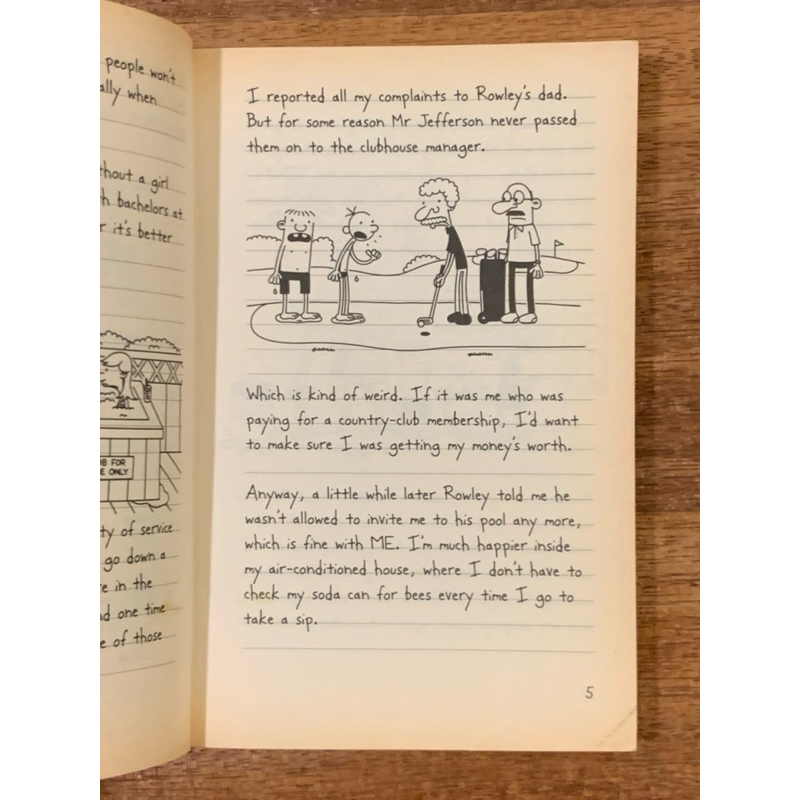 people won't
ally when
thout a girl
h bachelors at
r it's better
B FOR
E ONLY
ty of service
go down a
re in the
nd one time
e of those
I reported all my complaints to Rowley's dad.
But for some reason Mr Jefferson never passed
them on to the clubhouse manager.
Which is kind of weird. If it was me who was
paying for a country-club membership, I'd want
to make sure I was getting my money's worth.
Anyway, a little while later Rowley told me he
wasn't allowed to invite me to his pool any more,
which is fine with ME. I'm much happier inside
my air-conditioned house, where I don't have to
check my soda can for bees every time I go to
take a sip.
5